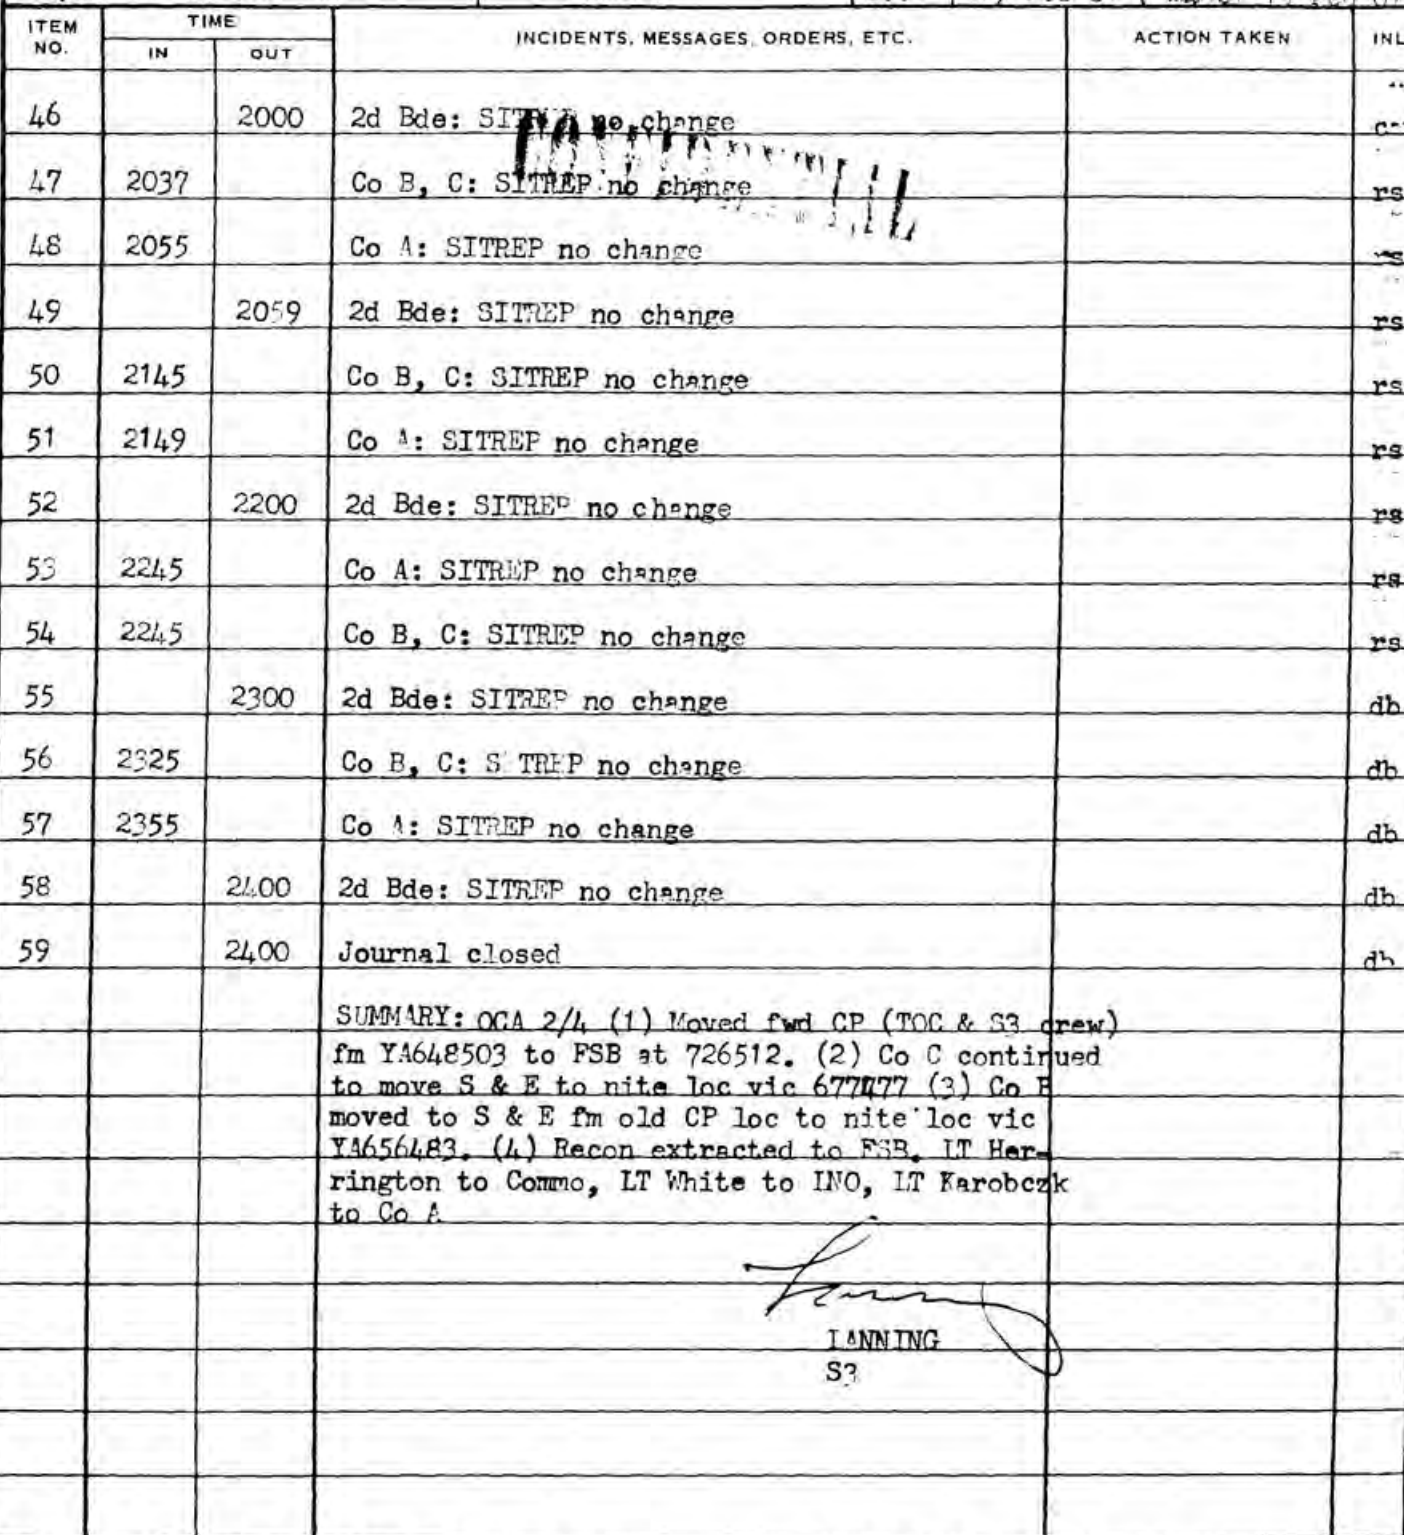 ITEM NO. TIME INCIDENTS, MESSAGES, ORDERS, ETC. ACTION TAKEN INL
IN OUT
46 2000 2d Bde: no change
47 2037 Co B, C: SITREP no change rs
48 2055 Co A: SITREP no change rs
49 2059 2d Bde: SITREP no change rs
50 2145 Co B, C: SITREP no change rs
51 2149 Co A: SITREP no change rs
52 2200 2d Bde: SITREP no change rs
53 2245 Co A: SITREP no change rs
54 2245 Co B, C: SITREP no change rs
55 2300 2d Bde: SITREP no change db
56 2325 Co B, C: S TREP no change db
57 2355 Co A: SITREP no change db
58 2400 2d Bde: SITREP no change db
59 2400 Journal closed db
SUMMARY: OCA 2/4 (1) Moved fwd CP (TOC & S3 crew)
fm YA648503 to FSB at 726512. (2) Co C continued
to move S & E to nite loc vic (3) Co B
moved to S & E fm old CP loc to nite loc vic
YA656483. (4) Recon extracted to FSB. LT Her-
rington to Commo, LT White to LNO, LT Karobczk
to Co A
LANNING
S3